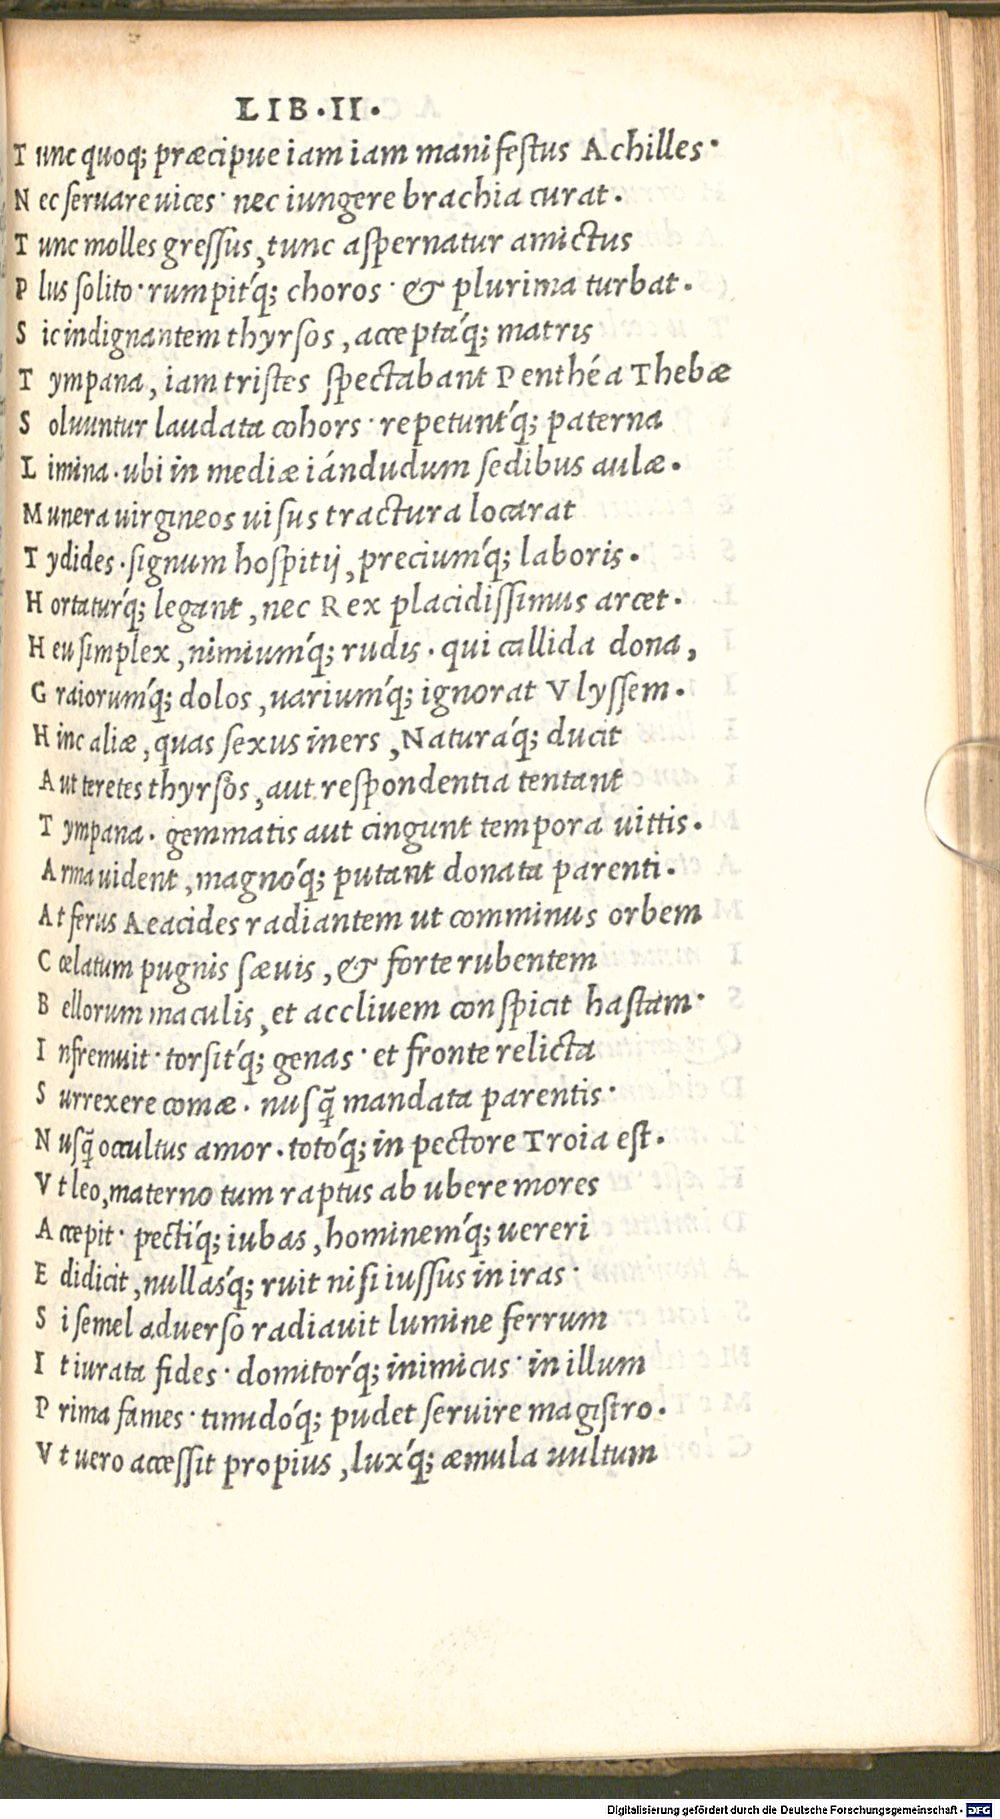 LIB·II·
Tunc quoq; præcipue iam iam manifestus Achilles·
Nec seruare uices· nec iungere brachia curat.
Tunc molles gressus, tunc aspernatur amictus
Plus solito· rumpit'q; choros· & plurima turbat.
Sic indignantem thyrsos, acceptá'q; matris
Tympana, iam tristes spectabant Penthéa Thebæ
Soluuntur laudata cohors· repetunt'q; paterna
Limina·ubi in mediæ iándudum sedibus aulæ.
Munera uirgineos uisus tractura locarat
Tydides·signum hospitij, precium'q; laboris.
Hortatur'q; legant, nec Rex placidissimus arcet.
Heu simplex, nimium'q; rudis·qui callida dona,
Graiorum'q; dolos, uarium'q; ignorat Vlyssem.
Hinc aliæ, quas sexus iners, Naturá'q; ducit
Aut teretes thyrsos, aut respondentia tentant
Tympana·gemmatis aut cingunt tempora uittis.
Arma uident, magnó'q; putant donata parenti.
At ferus Aeacides radiantem ut comminus orbem
Cœlatum pugnis sæuis, & forte rubentem
Bellorum maculis, et accliuem conspicit hastam·
Infremuit· torsit'q; genas· et fronte relicta
Surrexere comæ·nusq̃ mandata parentis·
Nusq̃ occultus amor·totó'q; in pectore Troia est.
Vt leo, materno tum raptus ab ubere mores
Accepit· pecti'q; iubas, hominem'q; uereri
Edidicit, nullas'q; ruit nisi iussus in iras·
Si semel aduerso radiauit lumine ferrum
It iurata fides· domitor'q; inimicus· in illum
Prima fames· timidó'q; pudet seruire magistro.
Vt uero accessit propius, lux'q; æmula uultum
Digitalisierung gefördert durch die Deutsche Forschungsgemeinschaft - DFG